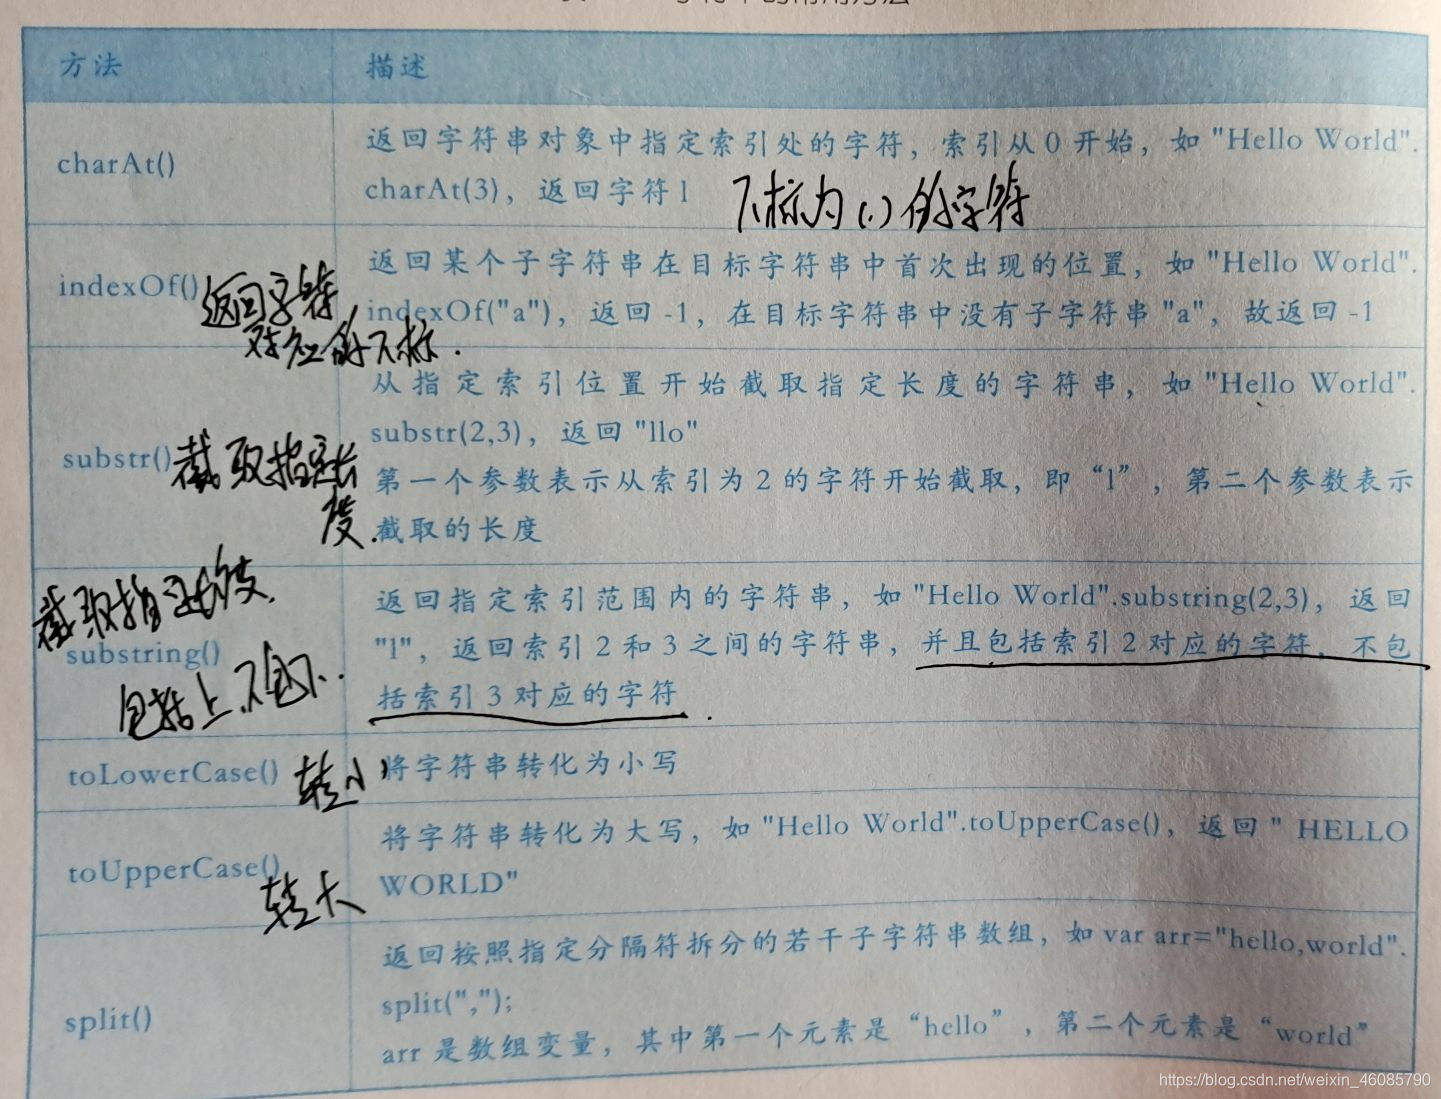 方法 描述
charAt()
返回字符串对象中指定索引处的字符，索引从0开始，如"Hello World".
charAt(3)，返回字符l
下标为(.)的字符
indexOf()
返回字符
对应的下标.
返回某个子字符串在目标字符串中首次出现的位置，如"Hello World".
indexOf("a")，返回-1，在目标字符串中没有子字符串"a"，故返回-1
substr()
截取指定长
度.
从指定索引位置开始截取指定长度的字符串，如"Hello World".
substr(2,3)，返回"llo"
第一个参数表示从索引为2的字符开始截取，即“l”，第二个参数表示
截取的长度
截取指定
substring()
包括上.不包下.
返回指定索引范围内的字符串，如"Hello World".substring(2,3)，返回
"l"，返回索引2和3之间的字符串，并且包括索引2对应的字符，不包
括索引3对应的字符
toLowerCase()
转小
将字符串转化为小写
toUpperCase()
转大
将字符串转化为大写，如"Hello World".toUpperCase()，返回" HELLO
WORLD"
split()
返回按照指定分隔符拆分的若干子字符串数组，如var arr="hello,world".
split(",");
arr是数组变量，其中第一个元素是“hello”，第二个元素是“world”
https://blog.csdn.net/weixin_46085790